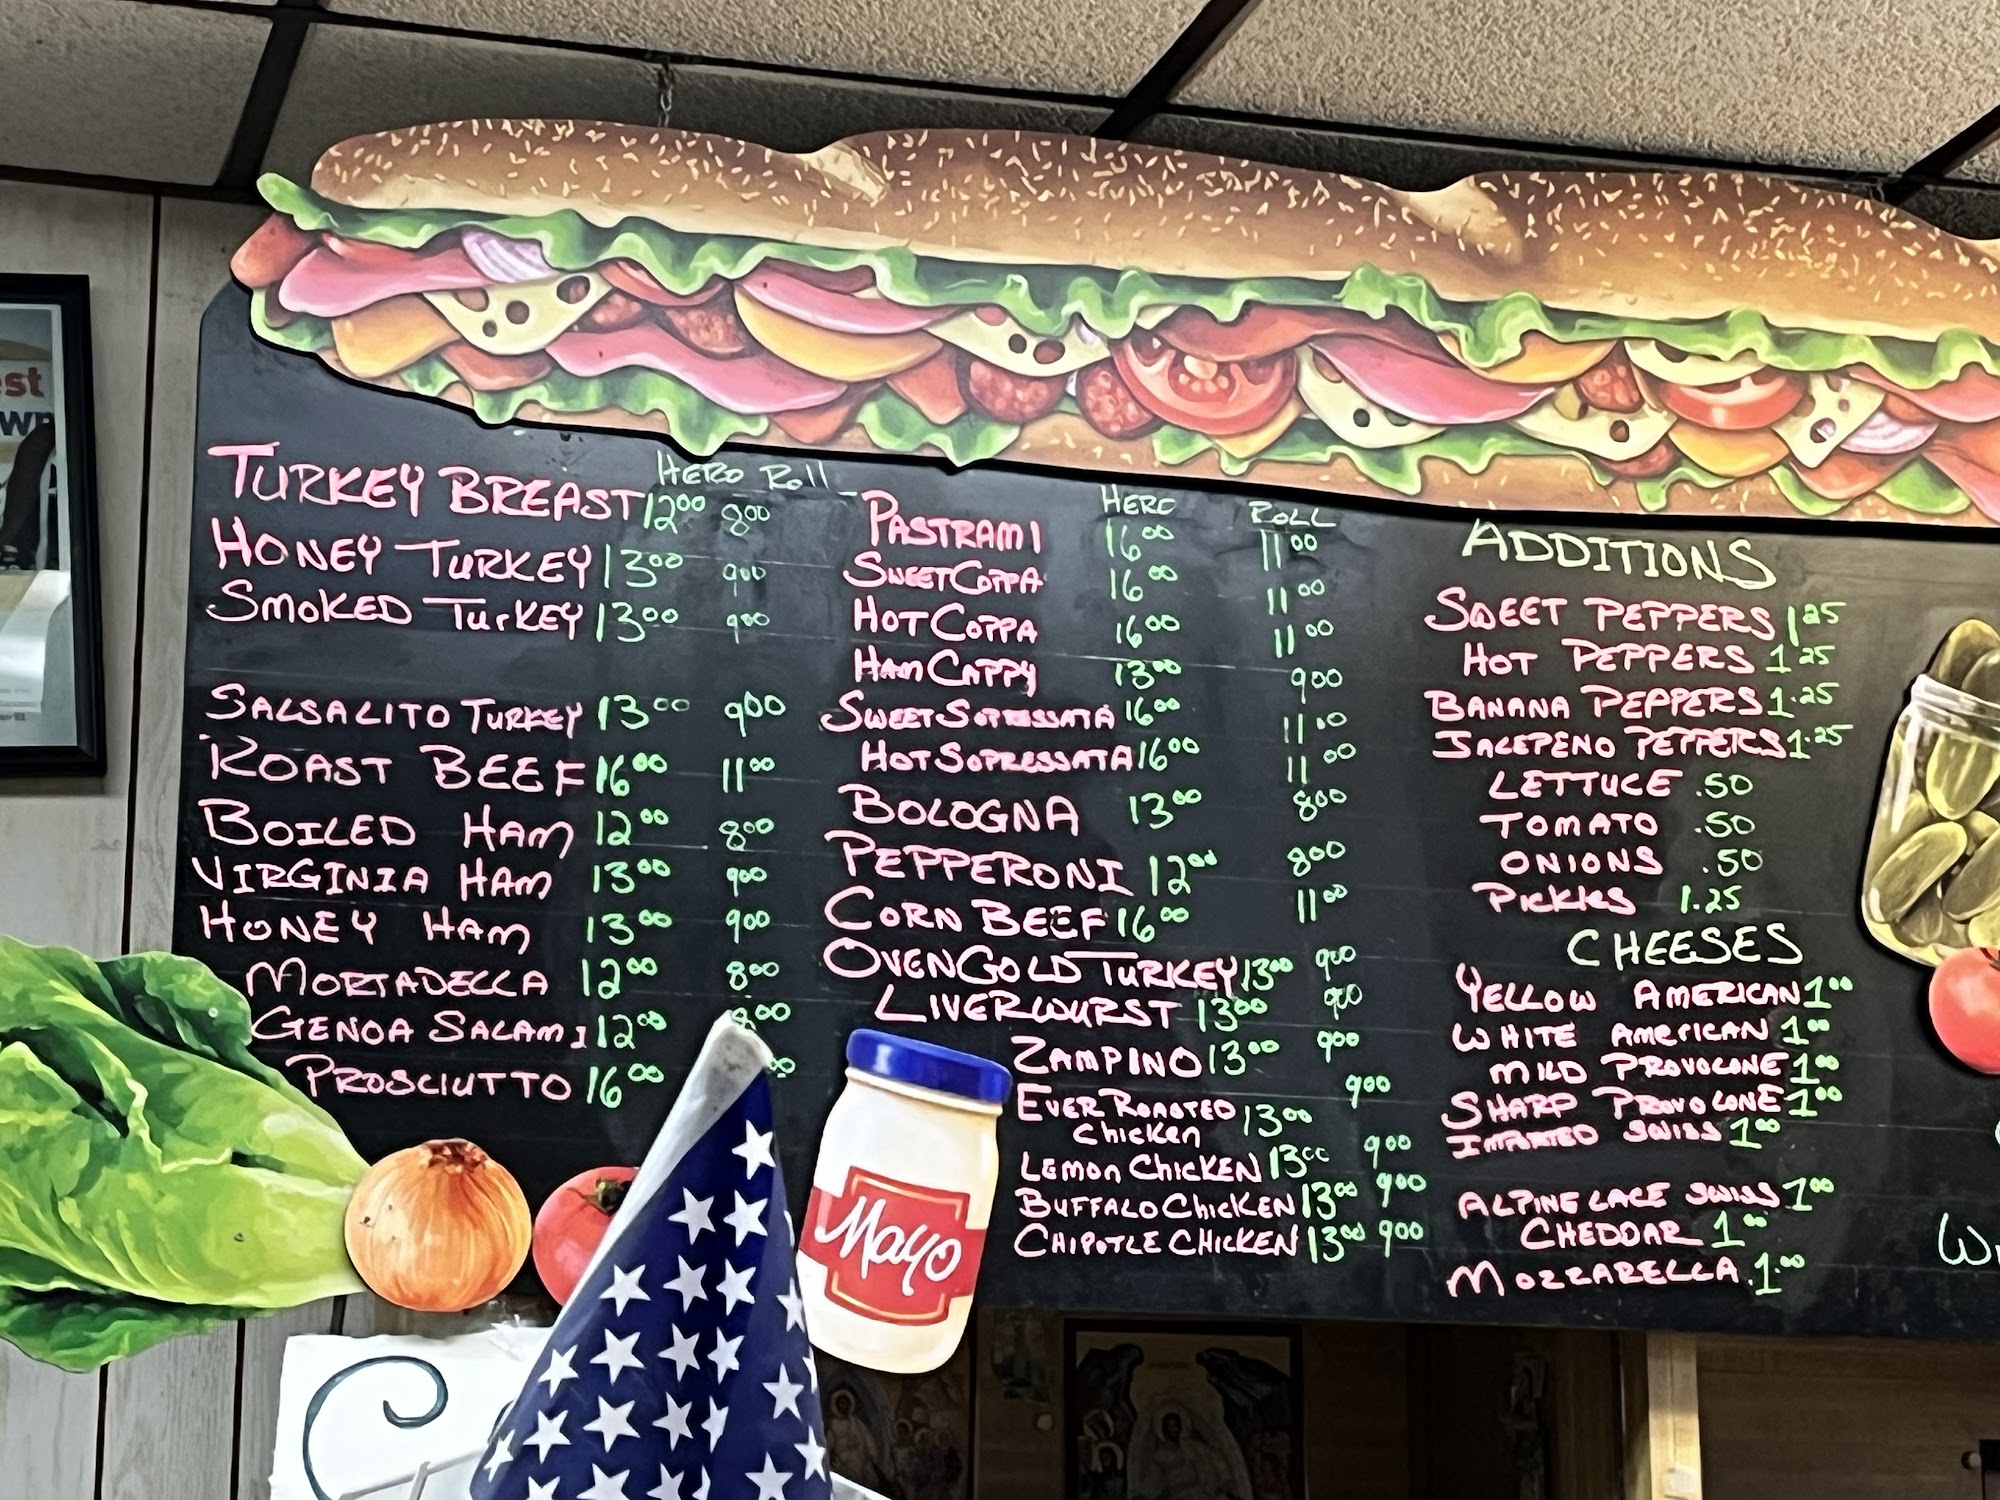 est
own
HERO ROLL
TURKEY BREAST 12⁰⁰ 8⁰⁰
HONEY TURKEY 13⁰⁰ 9⁰⁰
SMOKED TURKEY 13⁰⁰ 9⁰⁰
SALSALITO TURKEY 13⁰⁰ 9⁰⁰
ROAST BEEF 16⁰⁰ 11⁰⁰
BOILED HAM 12⁰⁰ 8⁰⁰
VIRGINIA HAM 13⁰⁰ 9⁰⁰
HONEY HAM 13⁰⁰ 9⁰⁰
MORTADELLA 12⁰⁰ 8⁰⁰
GENOA SALAMI 12⁰⁰ 8⁰⁰
PROSCIUTTO 16⁰⁰
HERO ROLL
PASTRAMI 16⁰⁰ 11⁰⁰
SWEET COPPA 16⁰⁰ 11⁰⁰
HOT COPPA 16⁰⁰ 11⁰⁰
HAM CAPPY 13⁰⁰ 9⁰⁰
SWEET SOPRESSATA 16⁰⁰ 11⁰⁰
HOT SOPRESSATA 16⁰⁰ 11⁰⁰
BOLOGNA 13⁰⁰ 8⁰⁰
PEPPERONI 12⁰⁰ 8⁰⁰
CORN BEEF 16⁰⁰ 11⁰⁰
OVENGOLD TURKEY 13⁰⁰ 9⁰⁰
LIVERWURST 13⁰⁰ 9⁰⁰
ZAMPINO 13⁰⁰ 9⁰⁰
EVER ROASTED 13⁰⁰ 9⁰⁰
CHICKEN
LEMON CHICKEN 13⁰⁰ 9⁰⁰
BUFFALO CHICKEN 13⁰⁰ 9⁰⁰
CHIPOTLE CHICKEN 13⁰⁰ 9⁰⁰
ADDITIONS
SWEET PEPPERS 1²⁵
HOT PEPPERS 1.25
BANANA PEPPERS 1.25
JALEPENO PEPPERS 1.25
LETTUCE .50
TOMATO .50
ONIONS .50
PICKLES 1.25
CHEESES
YELLOW AMERICAN 1⁰⁰
WHITE AMERICAN 1⁰⁰
MILD PROVOLONE 1⁰⁰
SHARP PROVOLONE 1⁰⁰
IMPORTED SWISS 1⁰⁰
ALPINE LACE SWISS 1⁰⁰
CHEDDAR 1⁰⁰
MOZZARELLA 1.⁰⁰
Mayo